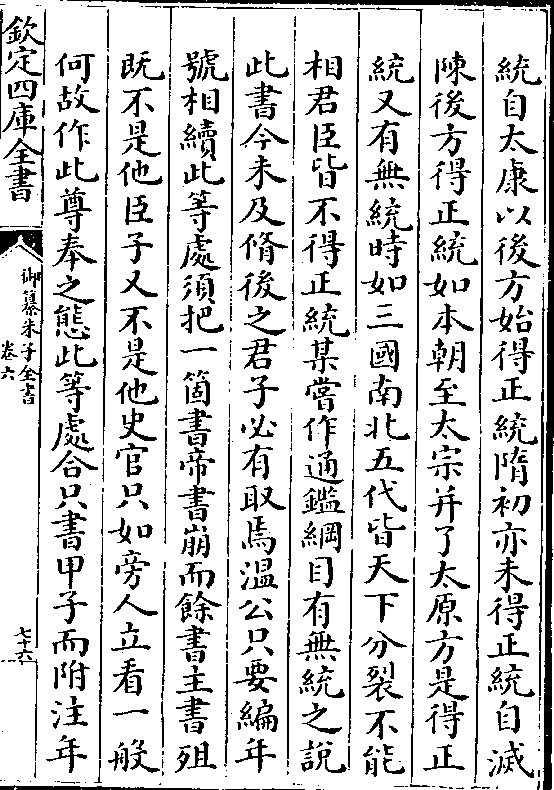 統自太康以後方始得正統隋初亦未得正統自滅
陳後方得正統如本朝至太宗并了太原方是得正
統又有無統時如三國南北五代皆天下分裂不能
相君臣皆不得正統某嘗作通鑑綱目有無統之說
此書今未及脩後之君子必有取焉温公只要編年
號相續此等處須把一箇書帝書崩而餘書主書殂
既不是他臣子又不是他史官只如旁人立看一般
何故作此尊奉之態此等處合只書甲子而附注年
欽定四庫全書
御纂朱子全書
卷六
七十六